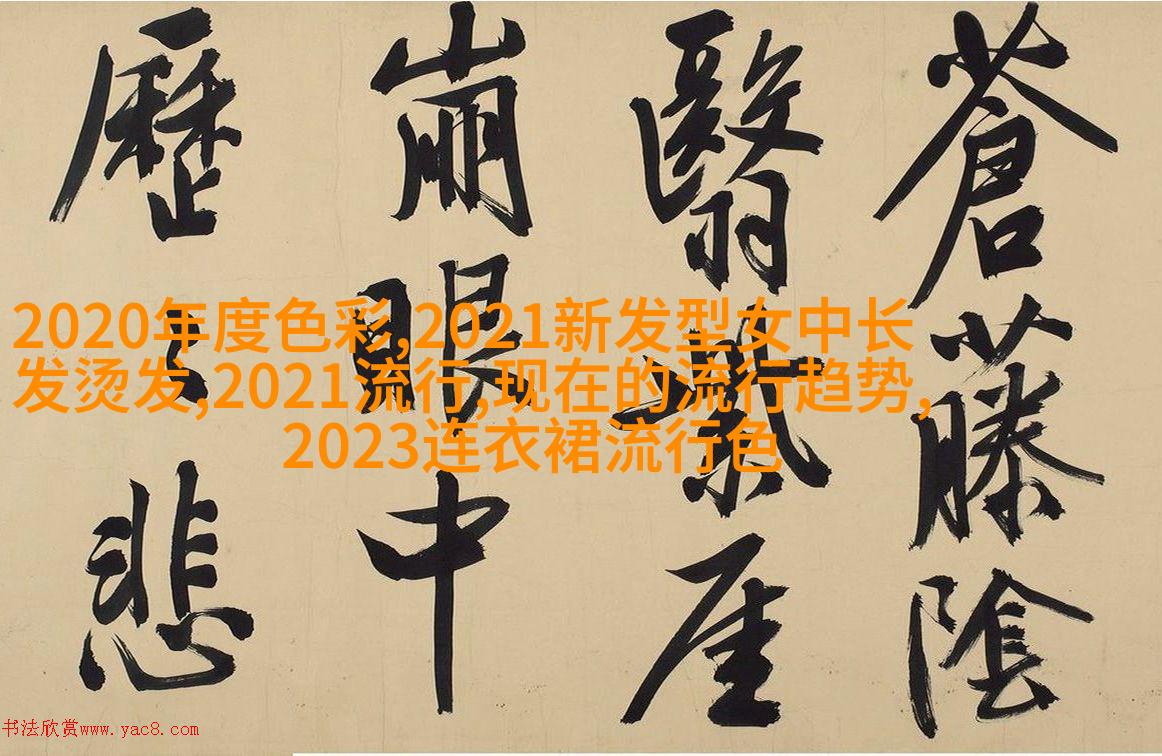 蒼藤陰
翳厓
崩眼中
歷悲
2020年度色彩,2021新发型女中长
发烫发,2021流行,现在的流行趋势,
2023连衣裙流行色
书法欣赏www.yac8.com